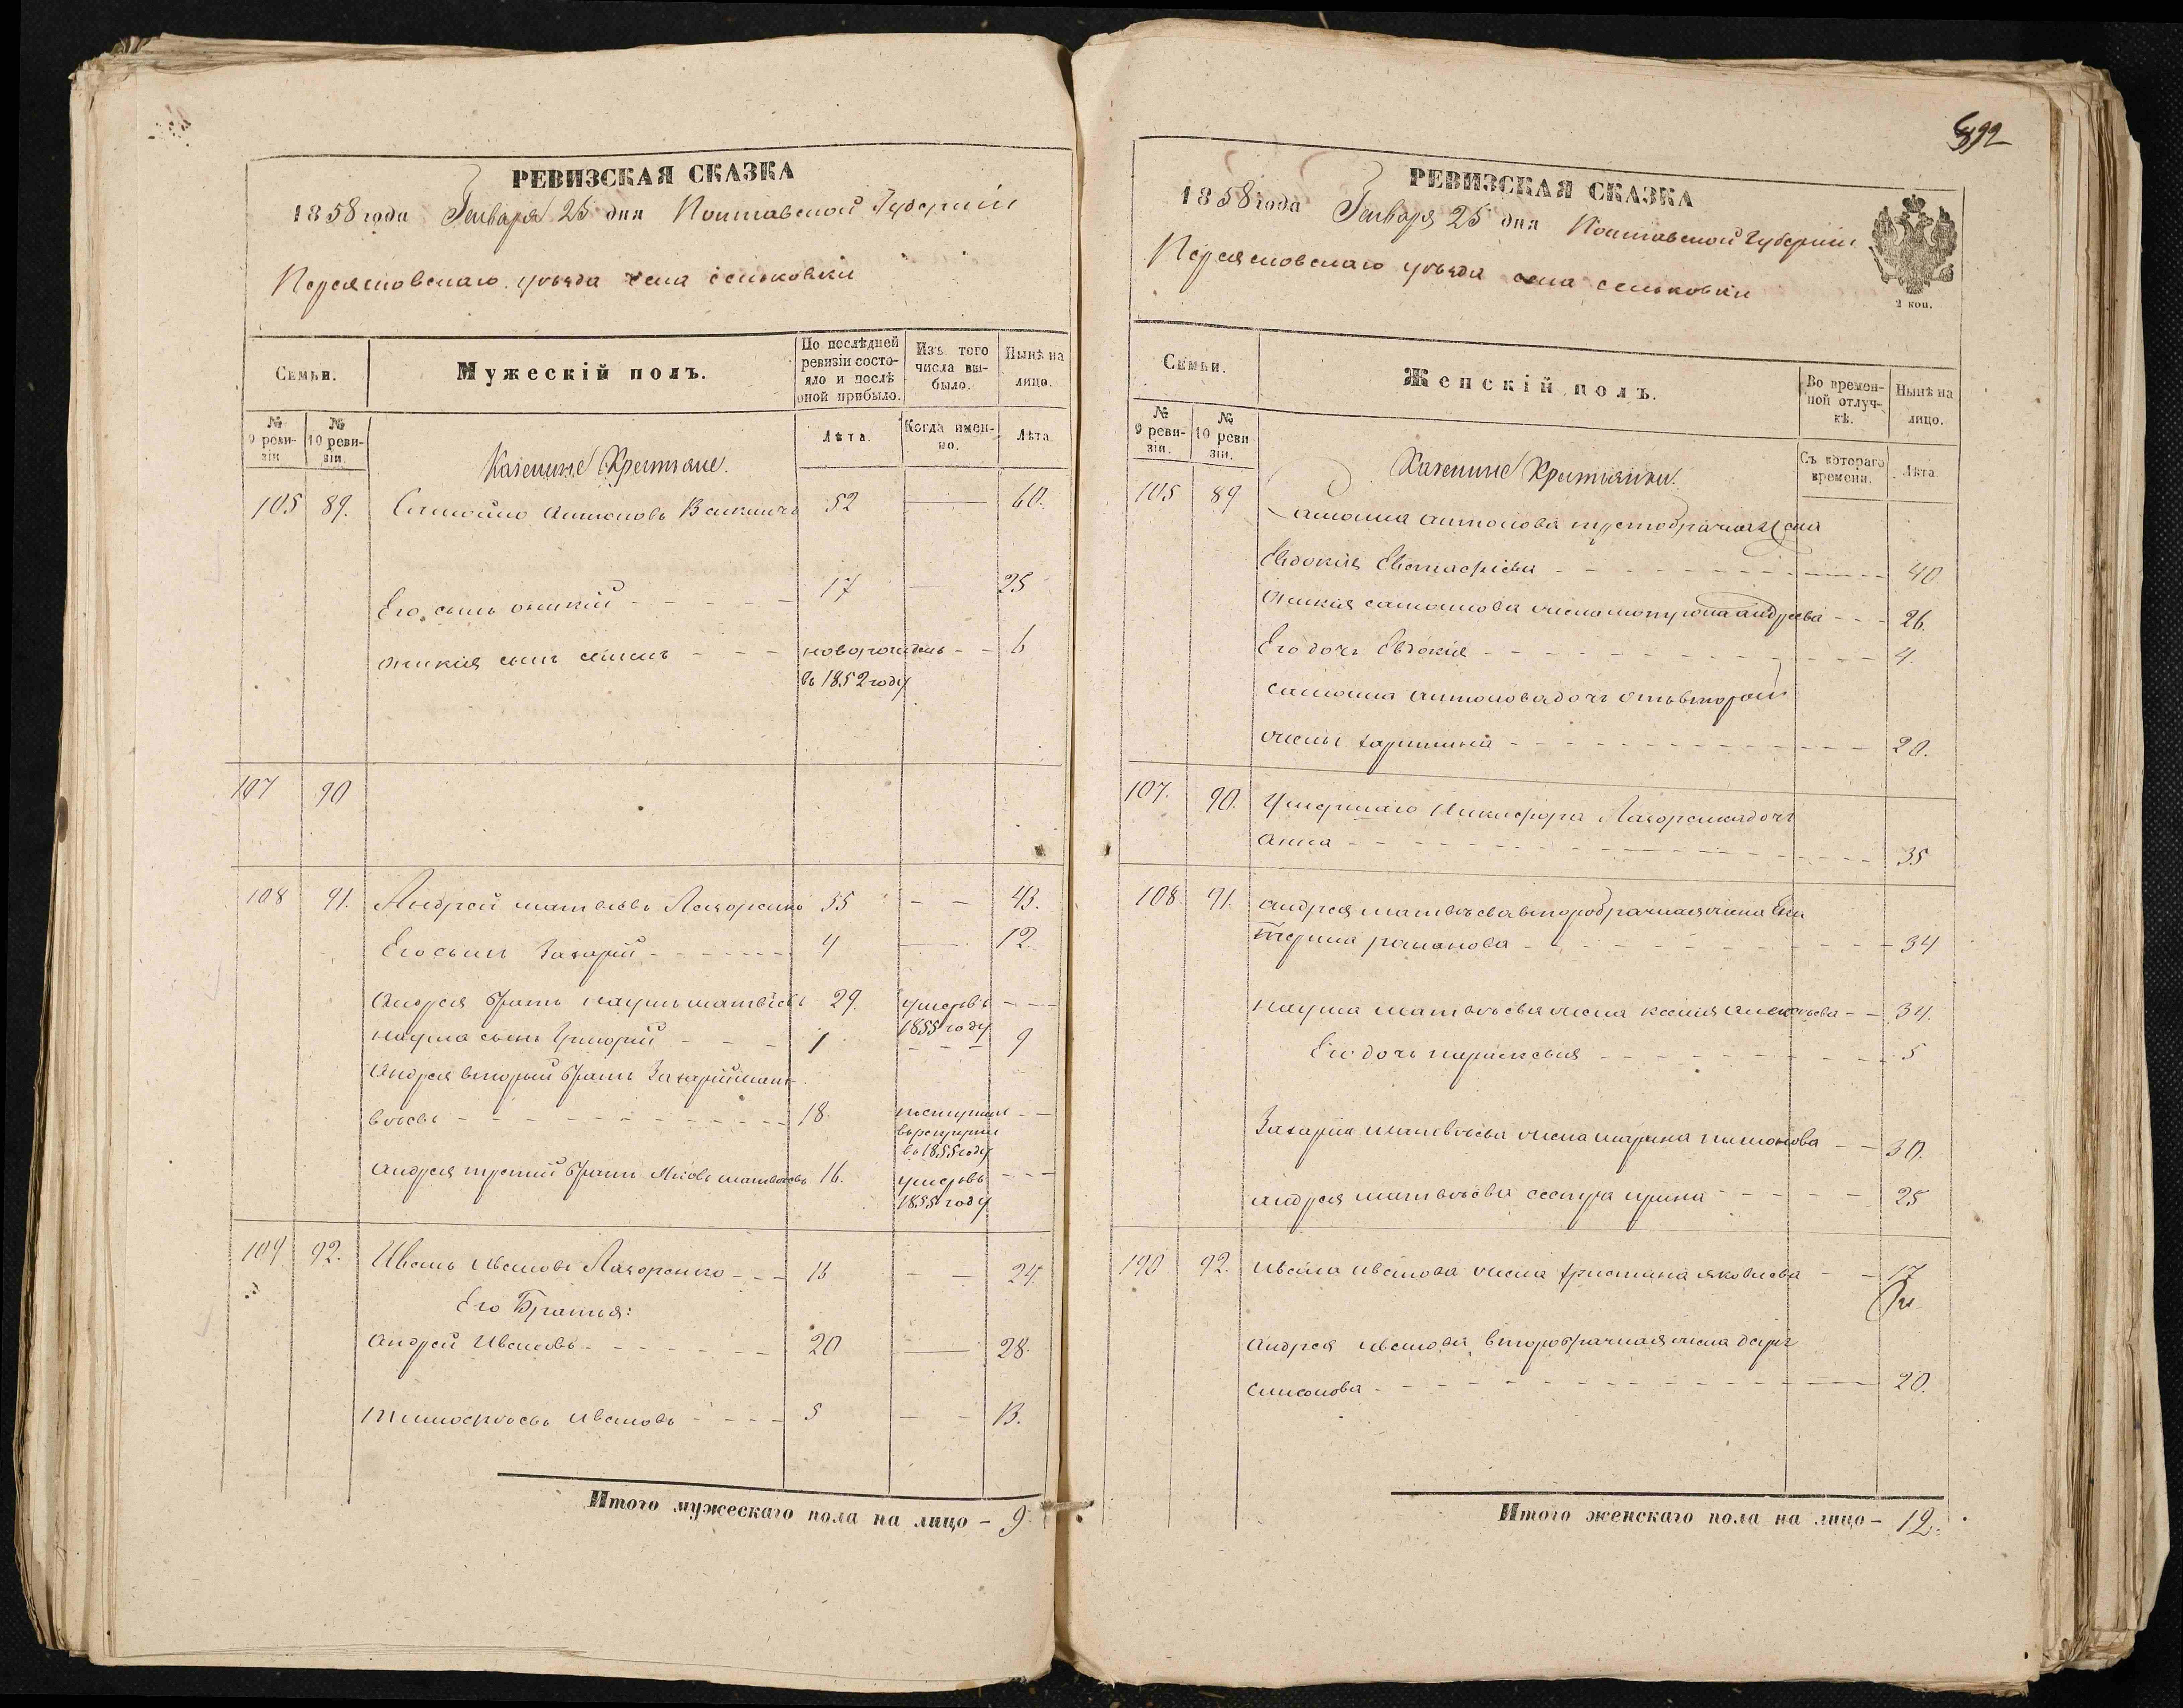 РЕВИЗСКАЯ СКАЗКА
1858 года Генваря 25 дня Полтавской Губерніи
Переяславскаго уѣзда села сеньковки
Семьи.
Мужескій полъ.
По послѣдней ревизіи состояло и послѣ оной прибыло.
Изъ того числа выбыло.
Нынѣ на лицо.
№ 9 ревизіи
№ 10 ревизіи.
Казенные Крестьяне.
Лѣта.
Когда именно.
Лѣта
105 89. Самойло Антоновъ 52 — 60.
Его сынъ оникій - - - 17 — 25
оникія сынъ семенъ - - - новорожденъ - - 6
въ 1852 году
107 90
108 91. Андрей матвѣевъ Лазоренко 35 - - 43.
Его сынъ Захарій - - - 4 — 12.
Андрея братъ наумъ матвѣевъ 29. умеръ въ - - -
1855 году
наума сынъ Григорій - - - 1 - - - 9
Андрея вторый братъ Захарій мат-
вѣевъ - - - 18. поступил - -
въ рекруты
въ 1855 году
Андрея третій братъ Яковъ матвѣевъ 16. умеръ въ - - -
1855 году
109 92. Иванъ Ивановъ Лазоренко - - - 16 - - 24.
Его Братья:
Андрей Ивановъ - - - 20 — 28.
тимофѣевъ Ивановъ - - - 5 - - 13.
Итого мужескаго пола на лицо - 9.
892
РЕВИЗСКАЯ СКАЗКА
1858 года Генваря 25 дня Полтавской губерніи
Переяславскаго уѣзда села сеньковки
2 коп.
Семьи.
Женскій полъ.
Во временной отлучкѣ.
Нынѣ на лицо.
№ 9 ревизіи.
№ 10 ревизіи.
Казенные Крестьянки.
Съ котораго времени.
Лѣта.
105 89 Самойла Антонова третобрачная жена
Евдокія Евстафіева - - - 40
Оникія самойлова жена андреева - - - 26.
Его дочь Евдокія - - - 4.
самойла антонова дочь отъ второй
жены харитина - - - 20.
107. 90. Умершаго Никифора Лазоренка дочь
анна - - - 35
108 91. андрея матвѣева второбрачная жена Ека
терина романова - - - 34
наума матвѣева жена ксенія алексѣева - - 34.
Его дочь парасковія - - - 5
Захарія матвѣева жена марина - - 30.
андрея матвѣева сестра ирина - - - 25
190 92. ивана иванова жена христина яковлева - - 17
Андрея иванова второбрачная жена дарія
симонова - - - 20.
Итого женскаго пола на лицо - 12.